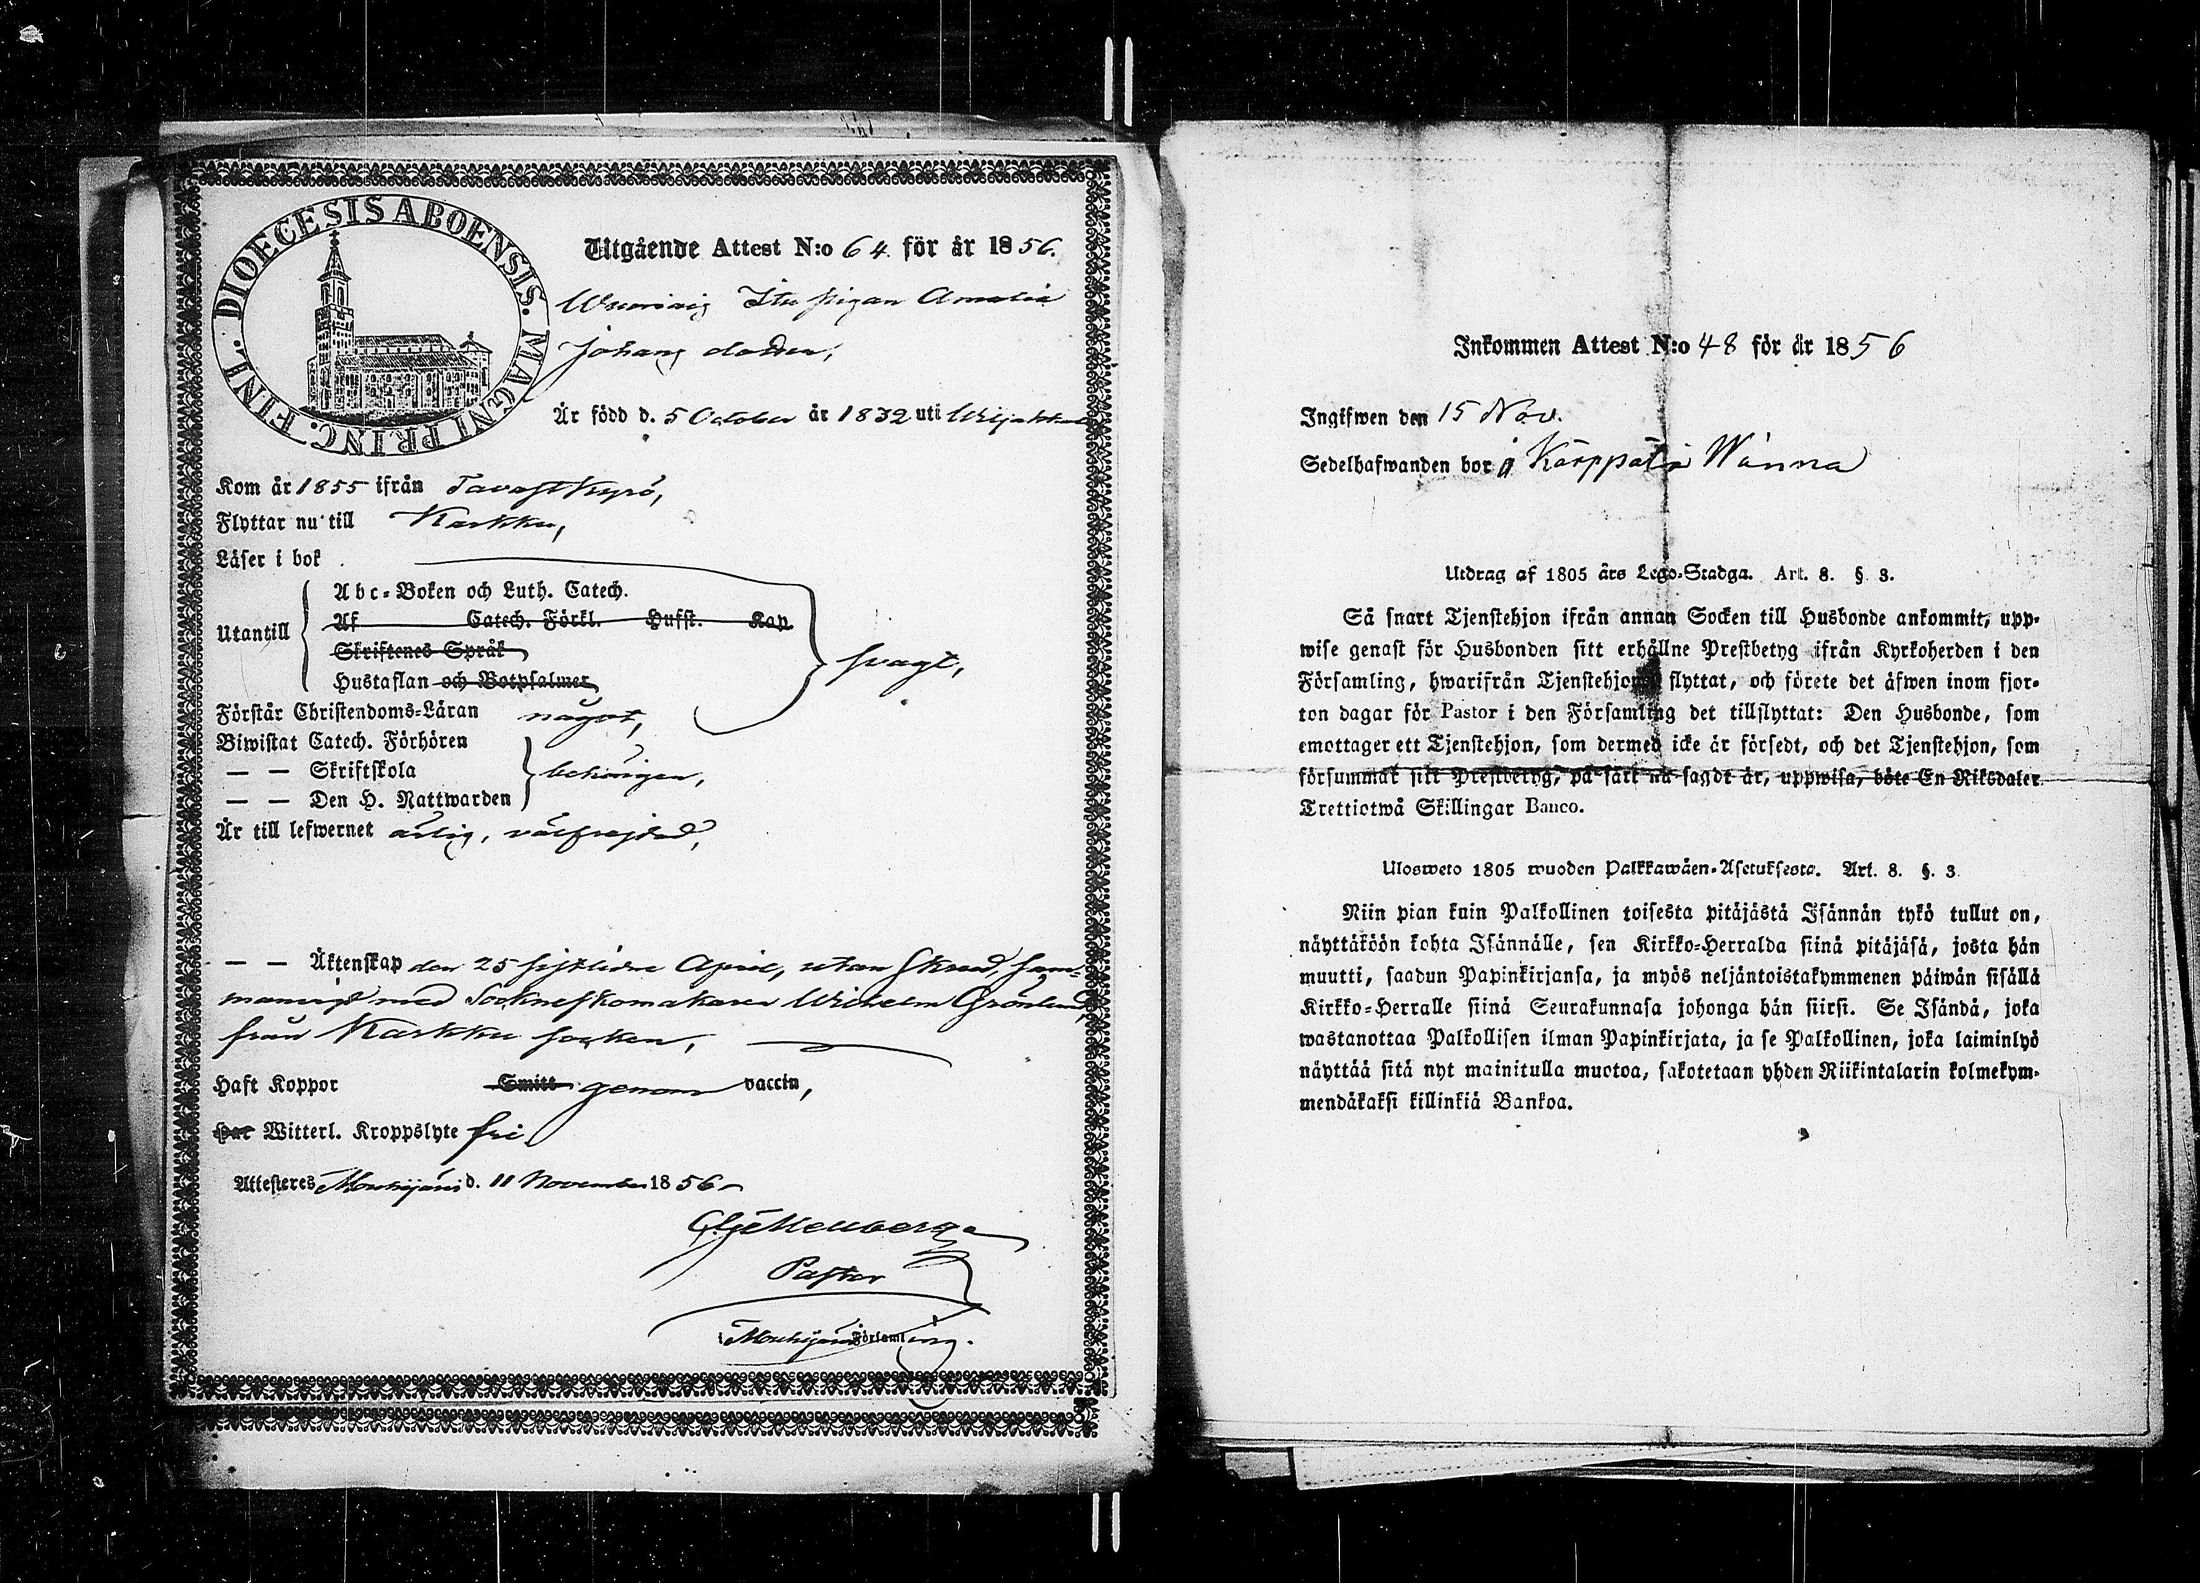 DIOECESIS ABOENSIS. MAGNI PRINC. FINL.
Utgående Attest N:o 64. för år 1856.
pigan Amalia
Johans dotter,
Är född d. 5 October år 1832 uti
Kom år 1855 ifrån Tavastkyrö,
Flyttar nu till Karkku,
Läser i bok
Utantill
Abc-Boken och Luth. Catech.
Af Catech. Förkl. Hufst. Kap
Skriftenes Språk
Hustaflan och Botpsalmer
svagt,
Förstår Christendoms-Läran något,
Biwistat Catech. Förhören
— — Skriftskola
— — Den H. Nattwarden
behörigen,
Är till lefwernet ärlig, välfrejdad,
— — Äktenskap den 25 sistlidne April, utan Skrud, sam-
manvigd med Socknskomakaren Wilhelm Grönlund,
från Karkku socken,
Haft Koppor Smitt genom vaccin,
Har Witterl. Kroppslyte fri
Attesteres Mouhijärvi d. 11 November 1856
Pastor
i Mouhijärvi Församling.
Inkommen Attest N:o 48 för år 1856
Ingifwen den 15 Nov.
Sedelhafwanden bor å Karppala Wänna
Utdrag af 1805 års Lego-Stadga. Art. 8. §. 3.
Så snart Tjenstehjon ifrån annan Socken till Husbonde ankommit, upp-
wise genast för Husbonden sitt erhållne Prestbetyg ifrån Kyrkoherden i den
Församling, hwarifrån Tjenstehjonet flyttat, och förete det äfwen inom fjor-
ton dagar för Pastor i den Församling det tillflyttat: Den Husbonde, som
emottager ett Tjenstehjon, som dermed icke är försedt, och det Tjenstehjon, som
försummar sitt Prestbetyg, på sätt nu sagdt är, uppwisa, böte En Riksdaler
Trettiotwå Skillingar Banco.
Ulosweto 1805 wuoden Palkkawäen-Asetuksesta. Art. 8. §. 3
Niin pian kuin Palkollinen toisesta pitäjästä Isännän tykö tullut on,
näyttäköön kohta Isännälle, sen Kirkko-Herralda siinä pitäjäsä, josta hän
muutti, saadun Papinkirjansa, ja myös neljäntoistakymmenen päiwän sisällä
Kirkko-Herralle siinä Seurakunnasa johonga hän siirsi. Se Isändä, joka
wastanottaa Palkollisen ilman Papinkirjata, ja se Palkollinen, joka laiminlyö
näyttää sitä nyt mainitulla muotoa, sakotetaan yhden Riikintalarin kolmekym-
mendäkaksi killinkiä Bankoa.